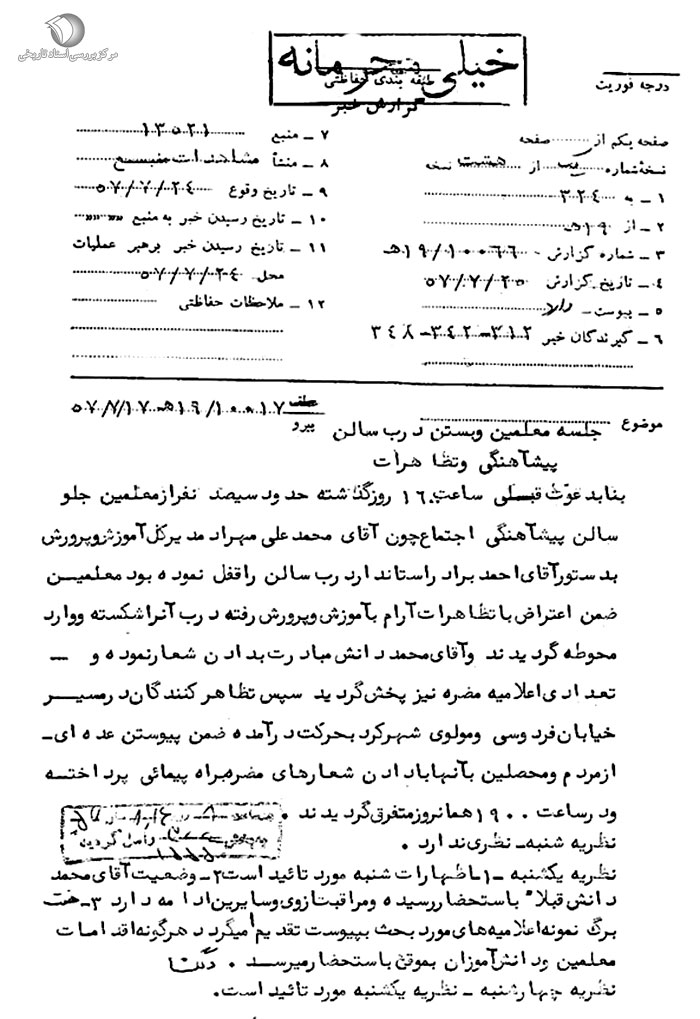 مرکز بررسی اسناد تاریخی
خیلی محرمانه
طبقه بندی حفاظتی
گزارش خبر
درجه فوریت
صفحه یکم از صفحه
نسخه شماره یک از هشت نسخه
۱ ـ به ۳۲۴
۲ ـ از ۱۹هـ
۳ ـ شماره گزارش ۱۹/۱۰۰۶۶هـ
۴ ـ تاریخ گزارش ۵۷/۷/۲۵
۵ ـ پیوست ـ دارد
۶ ـ گیرندگان خبر ۳۱۲-۳۴۲-۳۴۸
۷ ـ منبع ۱۳۵۲۱
۸ ـ منشأ مشاهدات منبع
۹ ـ تاریخ وقوع ۵۷/۷/۲۴
۱۰ ـ تاریخ رسیدن خبر به منبع " "
۱۱ ـ تاریخ رسیدن خبر برهبر عملیات
محل ۵۷/۷/۲۴
۱۲ ـ ملاحظات حفاظتی
پیرو ۱۹/۱۰۰۱۷هـ ۵۷/۷/۱۷
موضوع جلسه معلمین وبستن درب سالن
پیشآهنگی وتظاهرات
بنابدعوت قبلی ساعت ۱۶ روزگذشته حدود سیصد نفرازمعلمین جلو
سالن پیشآهنگی اجتماع چون آقای محمدعلی مهراد مدیرکل آموزش وپرورش
بدستورآقای احمد براد راستاندارد رب سالن راقفل نموده بود معلمیــن
ضمن اعتراض باتظاهرات آرام بآموزش وپرورش رفته درب آنراشکسته ووارد
محوطه گردیدند وآقای محمد دانش مبادرت بدادن شعارنموده و ـ
تعدادی اعلامیه مضره نیز پخش گردید سپس تظاهرکنندگان درمسیـر
خیابان فردوسی ومولوی شهرکرد بحرکت درآمده ضمن پیوستن عده ای ـ
ازمردم ومحصلین بآنهابادادن شعارهای مضره براه پیمائی پرداختـه
ودرساعت ۱۹۰۰ همانروزمتفرق گردیدند .
نظریه شنبه ـ نظری ندارد .
نظریه یکشنبه ـ ۱ـ اظهارات شنبه مورد تائید است ۲ـ وضعیت آقای محمد
دانش قبلا" باستحضار رسیده ومراقبت ازوی وسایرین ادامه دارد ۳ـ هفت
برگ نمونه اعلامیه های مورد بحث بپیوست تقدیم میگردد هرگونه اقدامات
معلمین ودانش آموزان بموقع باستحضارمیرسد .
نظریه چهارشنبه ـ نظریه یکشنبه مورد تائید است.